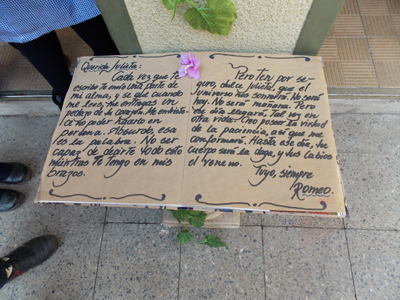 Querida Julieta:
Cada vez que te
escribo te envío una parte de
mi alma, y sé que cuando
me lees, me entregas un
pedazo de tu corazón. He sentido
el no poder hacerlo en
persona. Absurdo, esa
es la palabra. No ser
capaz de decirte todo esto
mientras te tengo en mis
brazos.
Pero ten por se-
guro, dulce Julieta, que el
universo nos sonreirá. No será
hoy. No será mañana. Pero
ese día llegará. Tal vez en
otra vida. Uno posee la virtud
de la paciencia, así que me
conformaré. Hasta ese día, tu
cuerpo será la daga, y tus labios
el veneno.
Tuyo, siempre
Romeo.